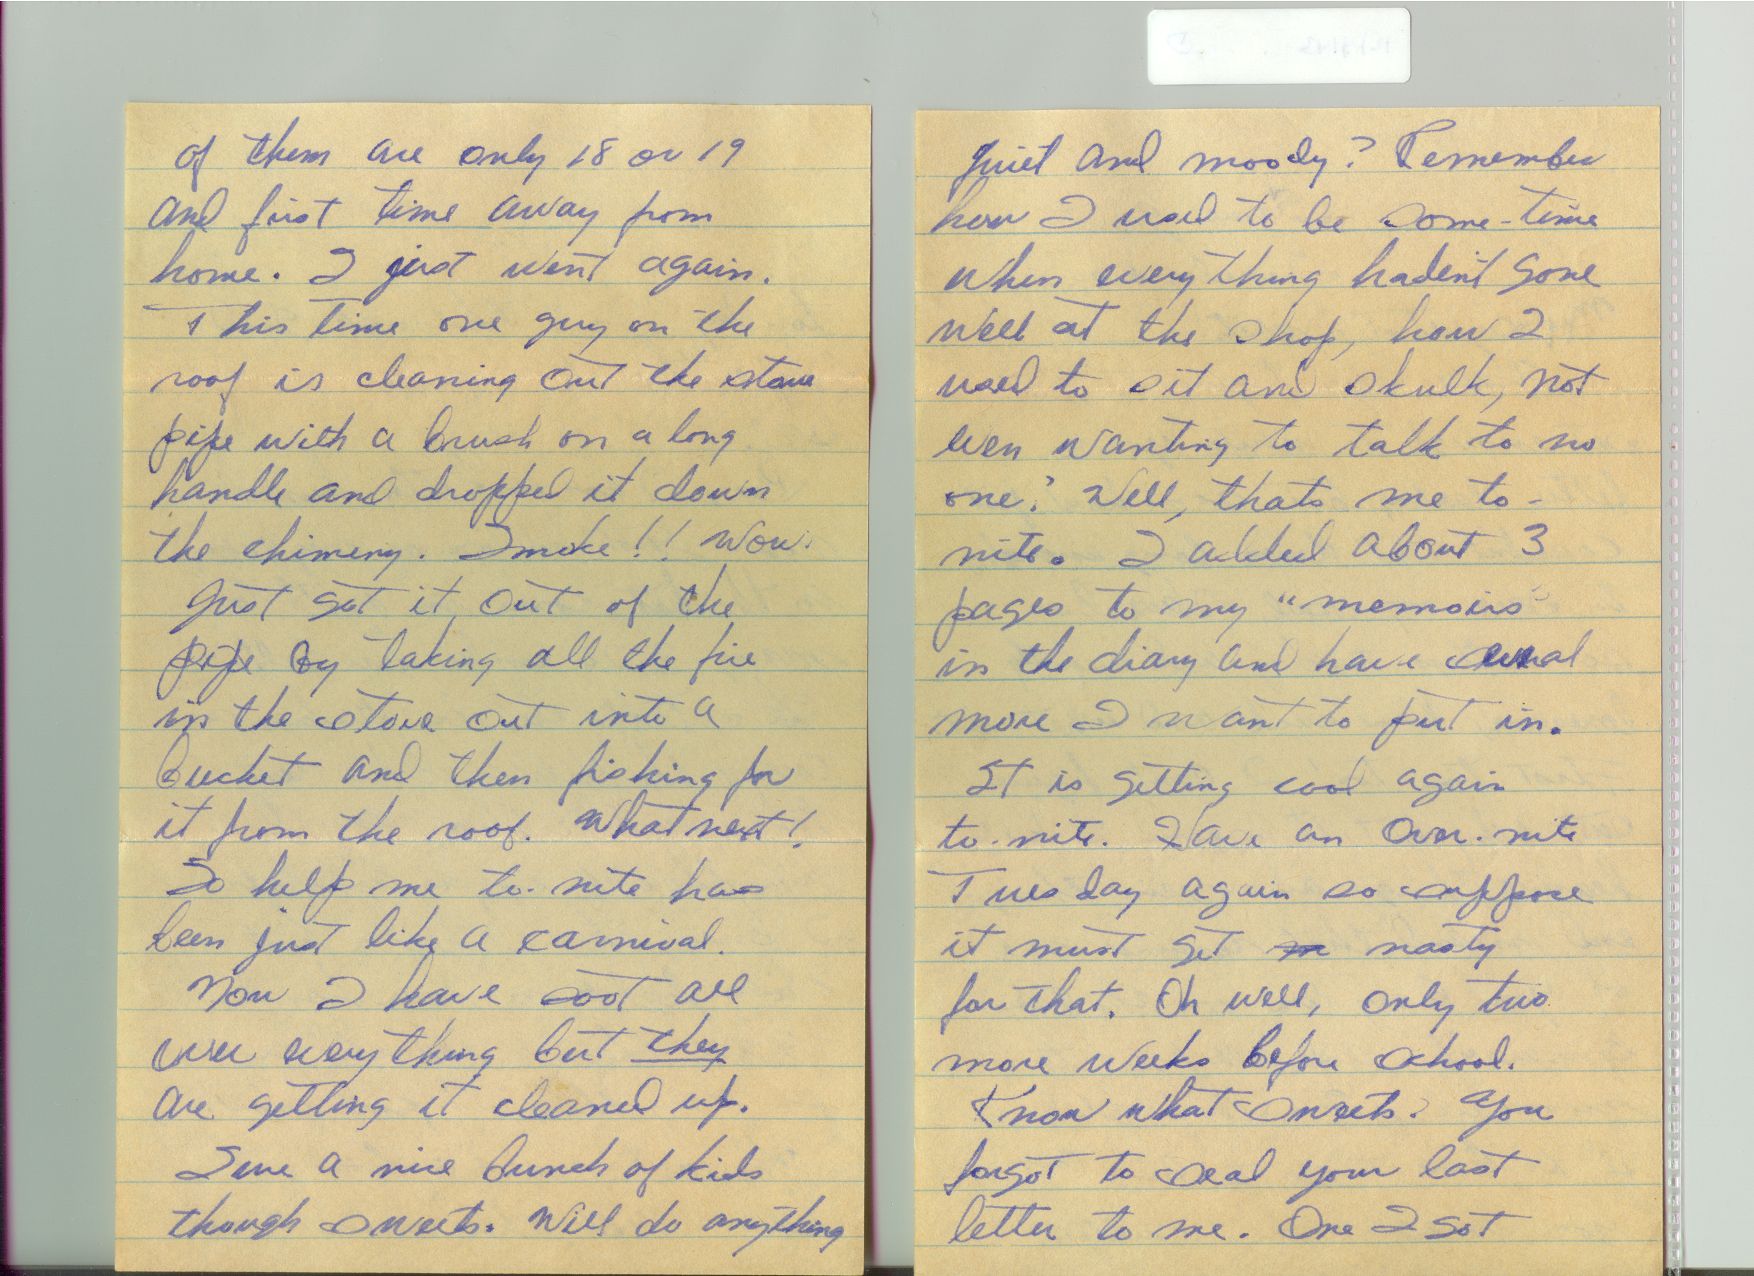 of them are only 18 or 19
and first time away from
home. I just went again.
This time one guy on the
roof is cleaning out the stove
pipe with a brush on a long
handle and dropped it down
the chimeny. Smoke!! Wow.
Just got it out of the
pipe by taking all the fire
in the stove out into a
bucket and then fishing for
it from the roof. What next!
So help me to-nite has
been just like a carnival.
Now I have soot all
over everything but they
are getting it cleaned up.
Sure a nice bunch of kids
though sweets. Will do anything
quiet and moody? Remember
how I used to be some-time
when everything hadent gone
well at the shop, how I
used to sit and skulk, not
even wanting to talk to no
one? Well, thats me to-
nite. I added about 3
pages to my "memoirs"
in the diary and have several
more I want to put in.
It is getting cool again
to-nite. Have an over-nite
Tuesday again so suppose
it must get nasty
for that. Oh well, only two
more weeks before school.
Know what sweets? You
forgot to seal your last
letter to me. One I got